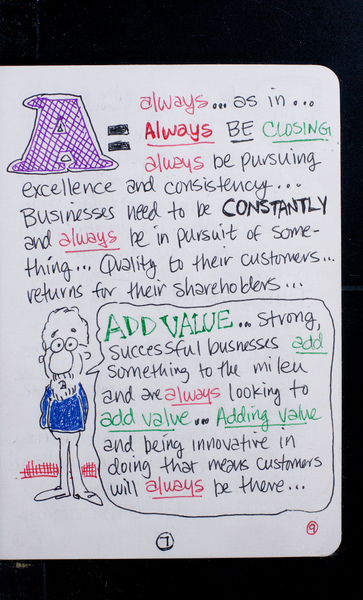 always... as in...
A = Always BE CLOSING
always be pursuing
excellence and consistency...
Businesses need to be CONSTANTLY
and always be in pursuit of some-
thing... Quality to their customers...
returns for their shareholders...
ADD VALUE... strong,
successful businesses add
something to the mileu
and are always looking to
add value... Adding value
and being innovative in
doing that means customers
will always be there...
7
9